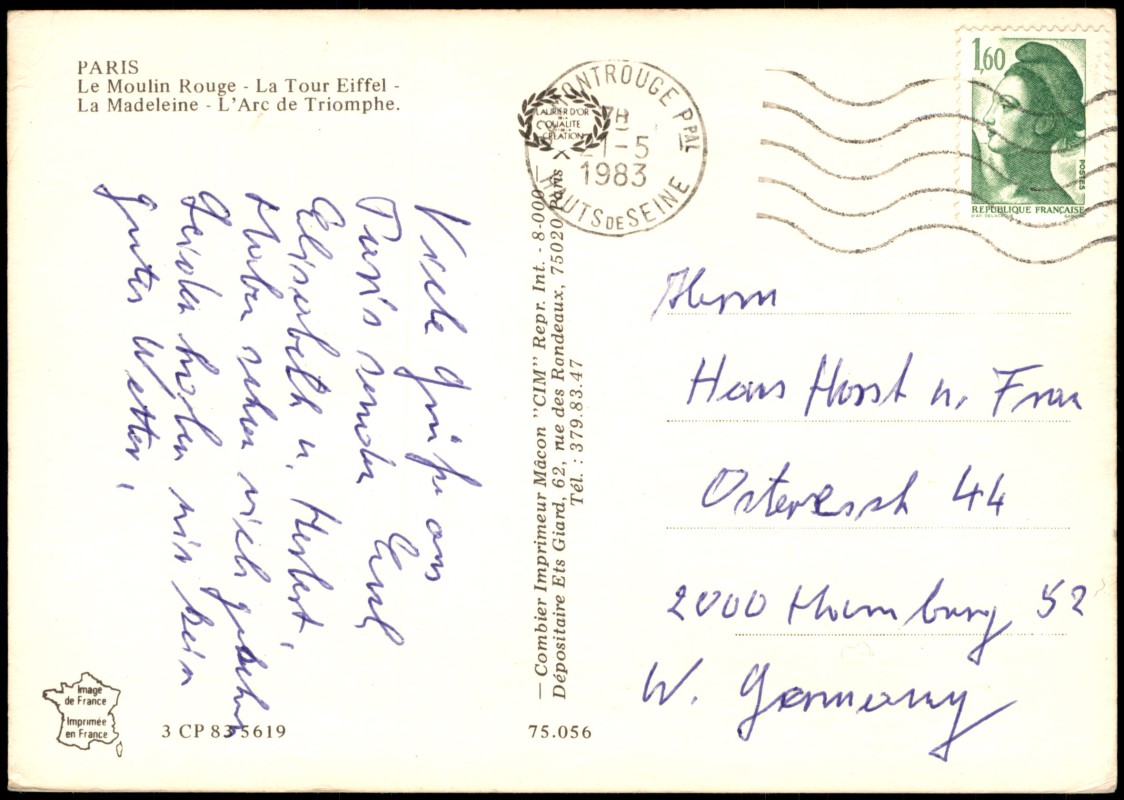 PARIS
Le Moulin Rouge - La Tour Eiffel -
La Madeleine - L'Arc de Triomphe.
MONTROUGE PPAL
21-5
1983
HAUTS DE SEINE
LAURIER D'OR
QUALITE
CREATION
1,60
POSTES
REPUBLIQUE FRANÇAISE
Viele Grüße aus
Paris senden Euch
Elisabeth u. Herbert.
Haben schon viel gesehen
Leider haben wir kein
gutes Wetter.
— Combier Imprimeur Mâcon "CIM" Repr. Int. - 8-000 —
Dépositaire Ets Giard, 62, rue des Rondeaux, 75020 Paris
Tél. : 379.83.47
Herrn
Hans Horst u. Frau
44
2000 Hamburg 52
W. Germany
Image
de France
Imprimée
en France
3 CP 83 5619
75.056